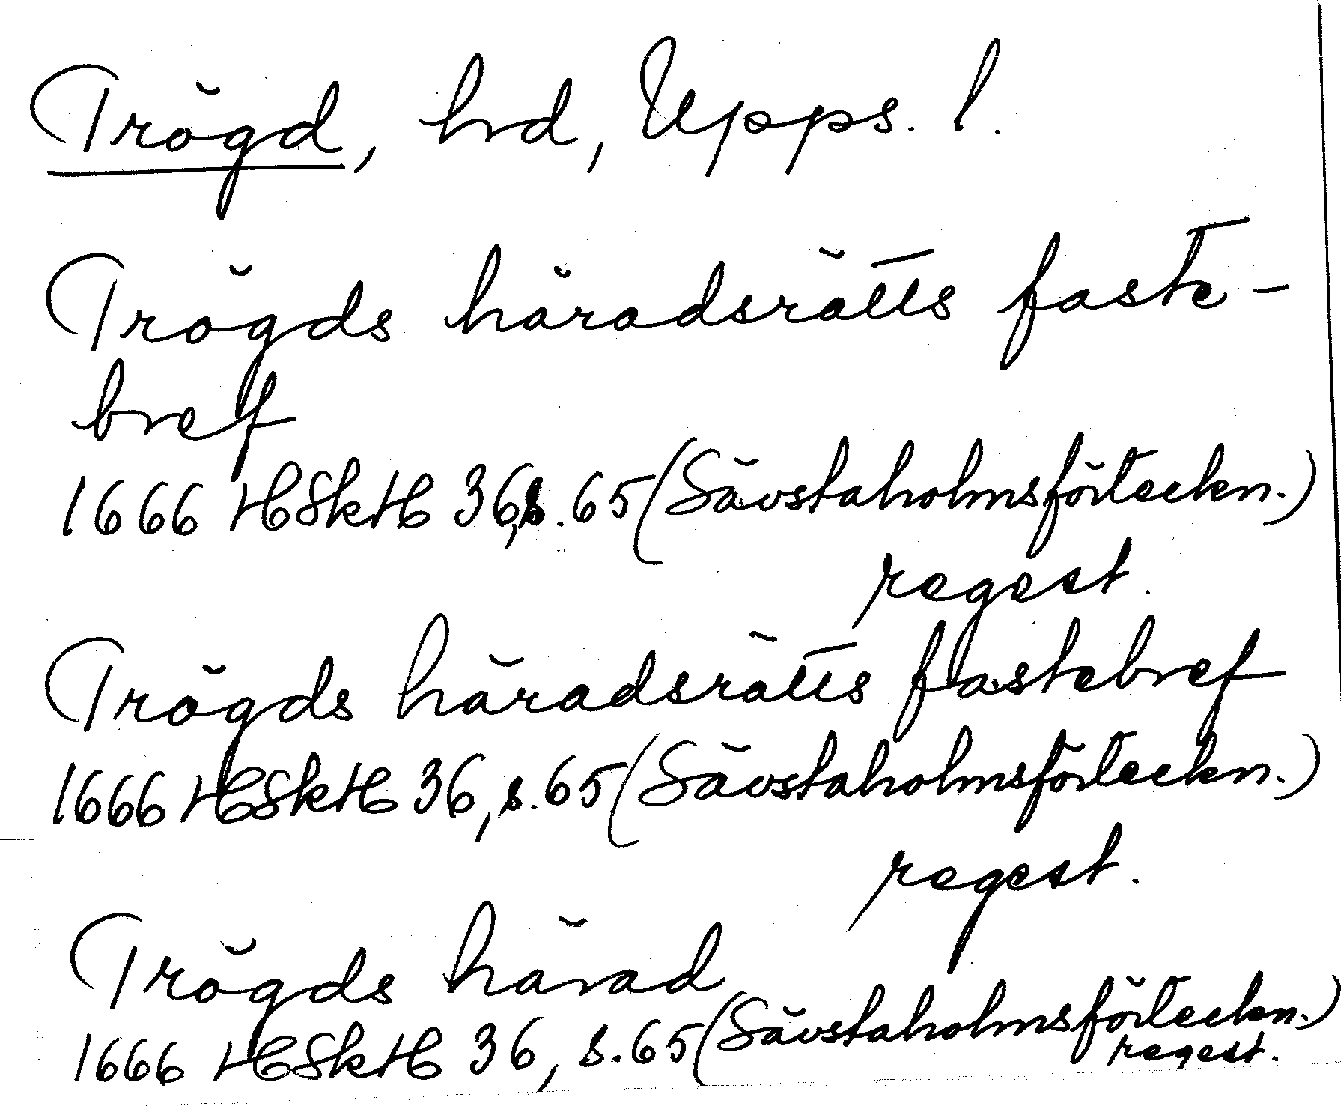 Trögd, hrd, Upps. l.
Trögds häradsrätts faste-
bref
1666 HSkH 36, s. 65 (Sävstaholmsförteckn.)
regest.
Trögds häradsrätts fastebref
1666 HSkH 36, s. 65 (Sävstaholmsförteckn.)
regest.
Trögds härad
1666 HSkH 36, s. 65 (Sävstaholmsförteckn.)
regest.